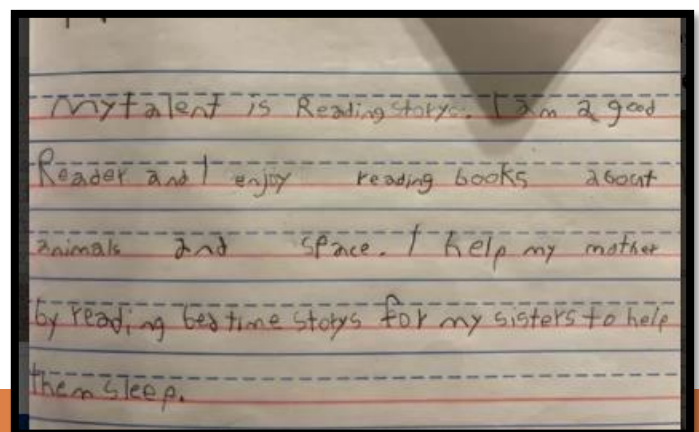 My talent is Reading storys. I am a good
Reader and I enjoy reading books about
animals and space. I help my mother
by reading bedtime storys for my sisters to help
them sleep.